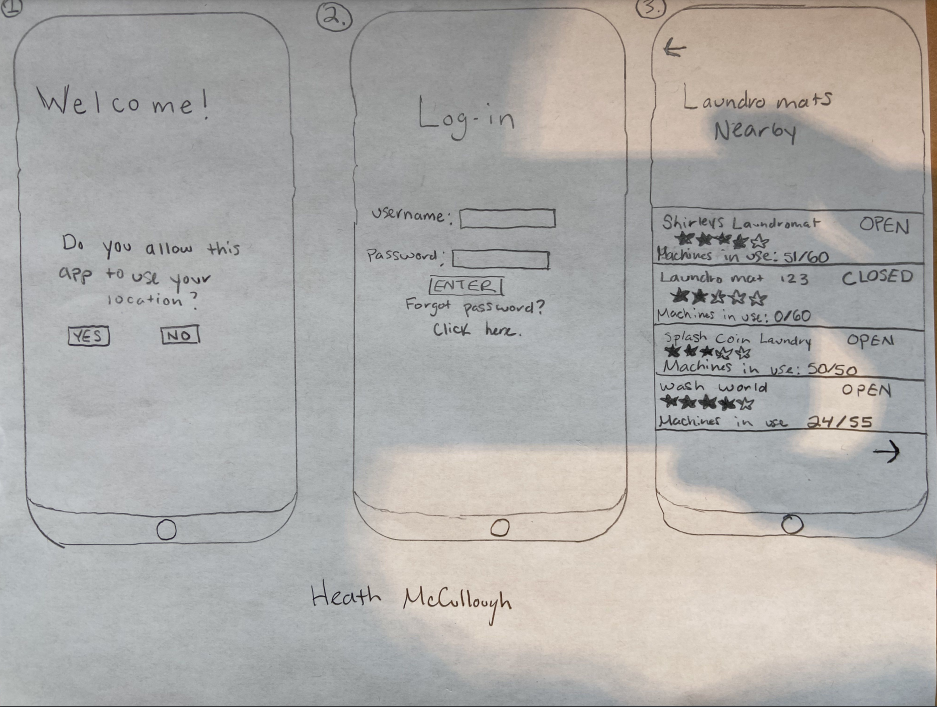 1.
Welcome!
Do you allow this
app to use your
location?
YES NO
2.
Log-in
username:
Password:
ENTER
Forgot password?
Click here.
3.
←
Laundromats
Nearby
Shirleys Laundromat OPEN
★★★★☆
Machines in use: 51/60
Laundromat 123 CLOSED
★★☆☆☆
Machines in use: 0/60
Splash Coin Laundry OPEN
★★★☆☆
Machines in use: 50/50
Wash world OPEN
★★★★☆
Machines in use 24/55
→
Heath McCullough